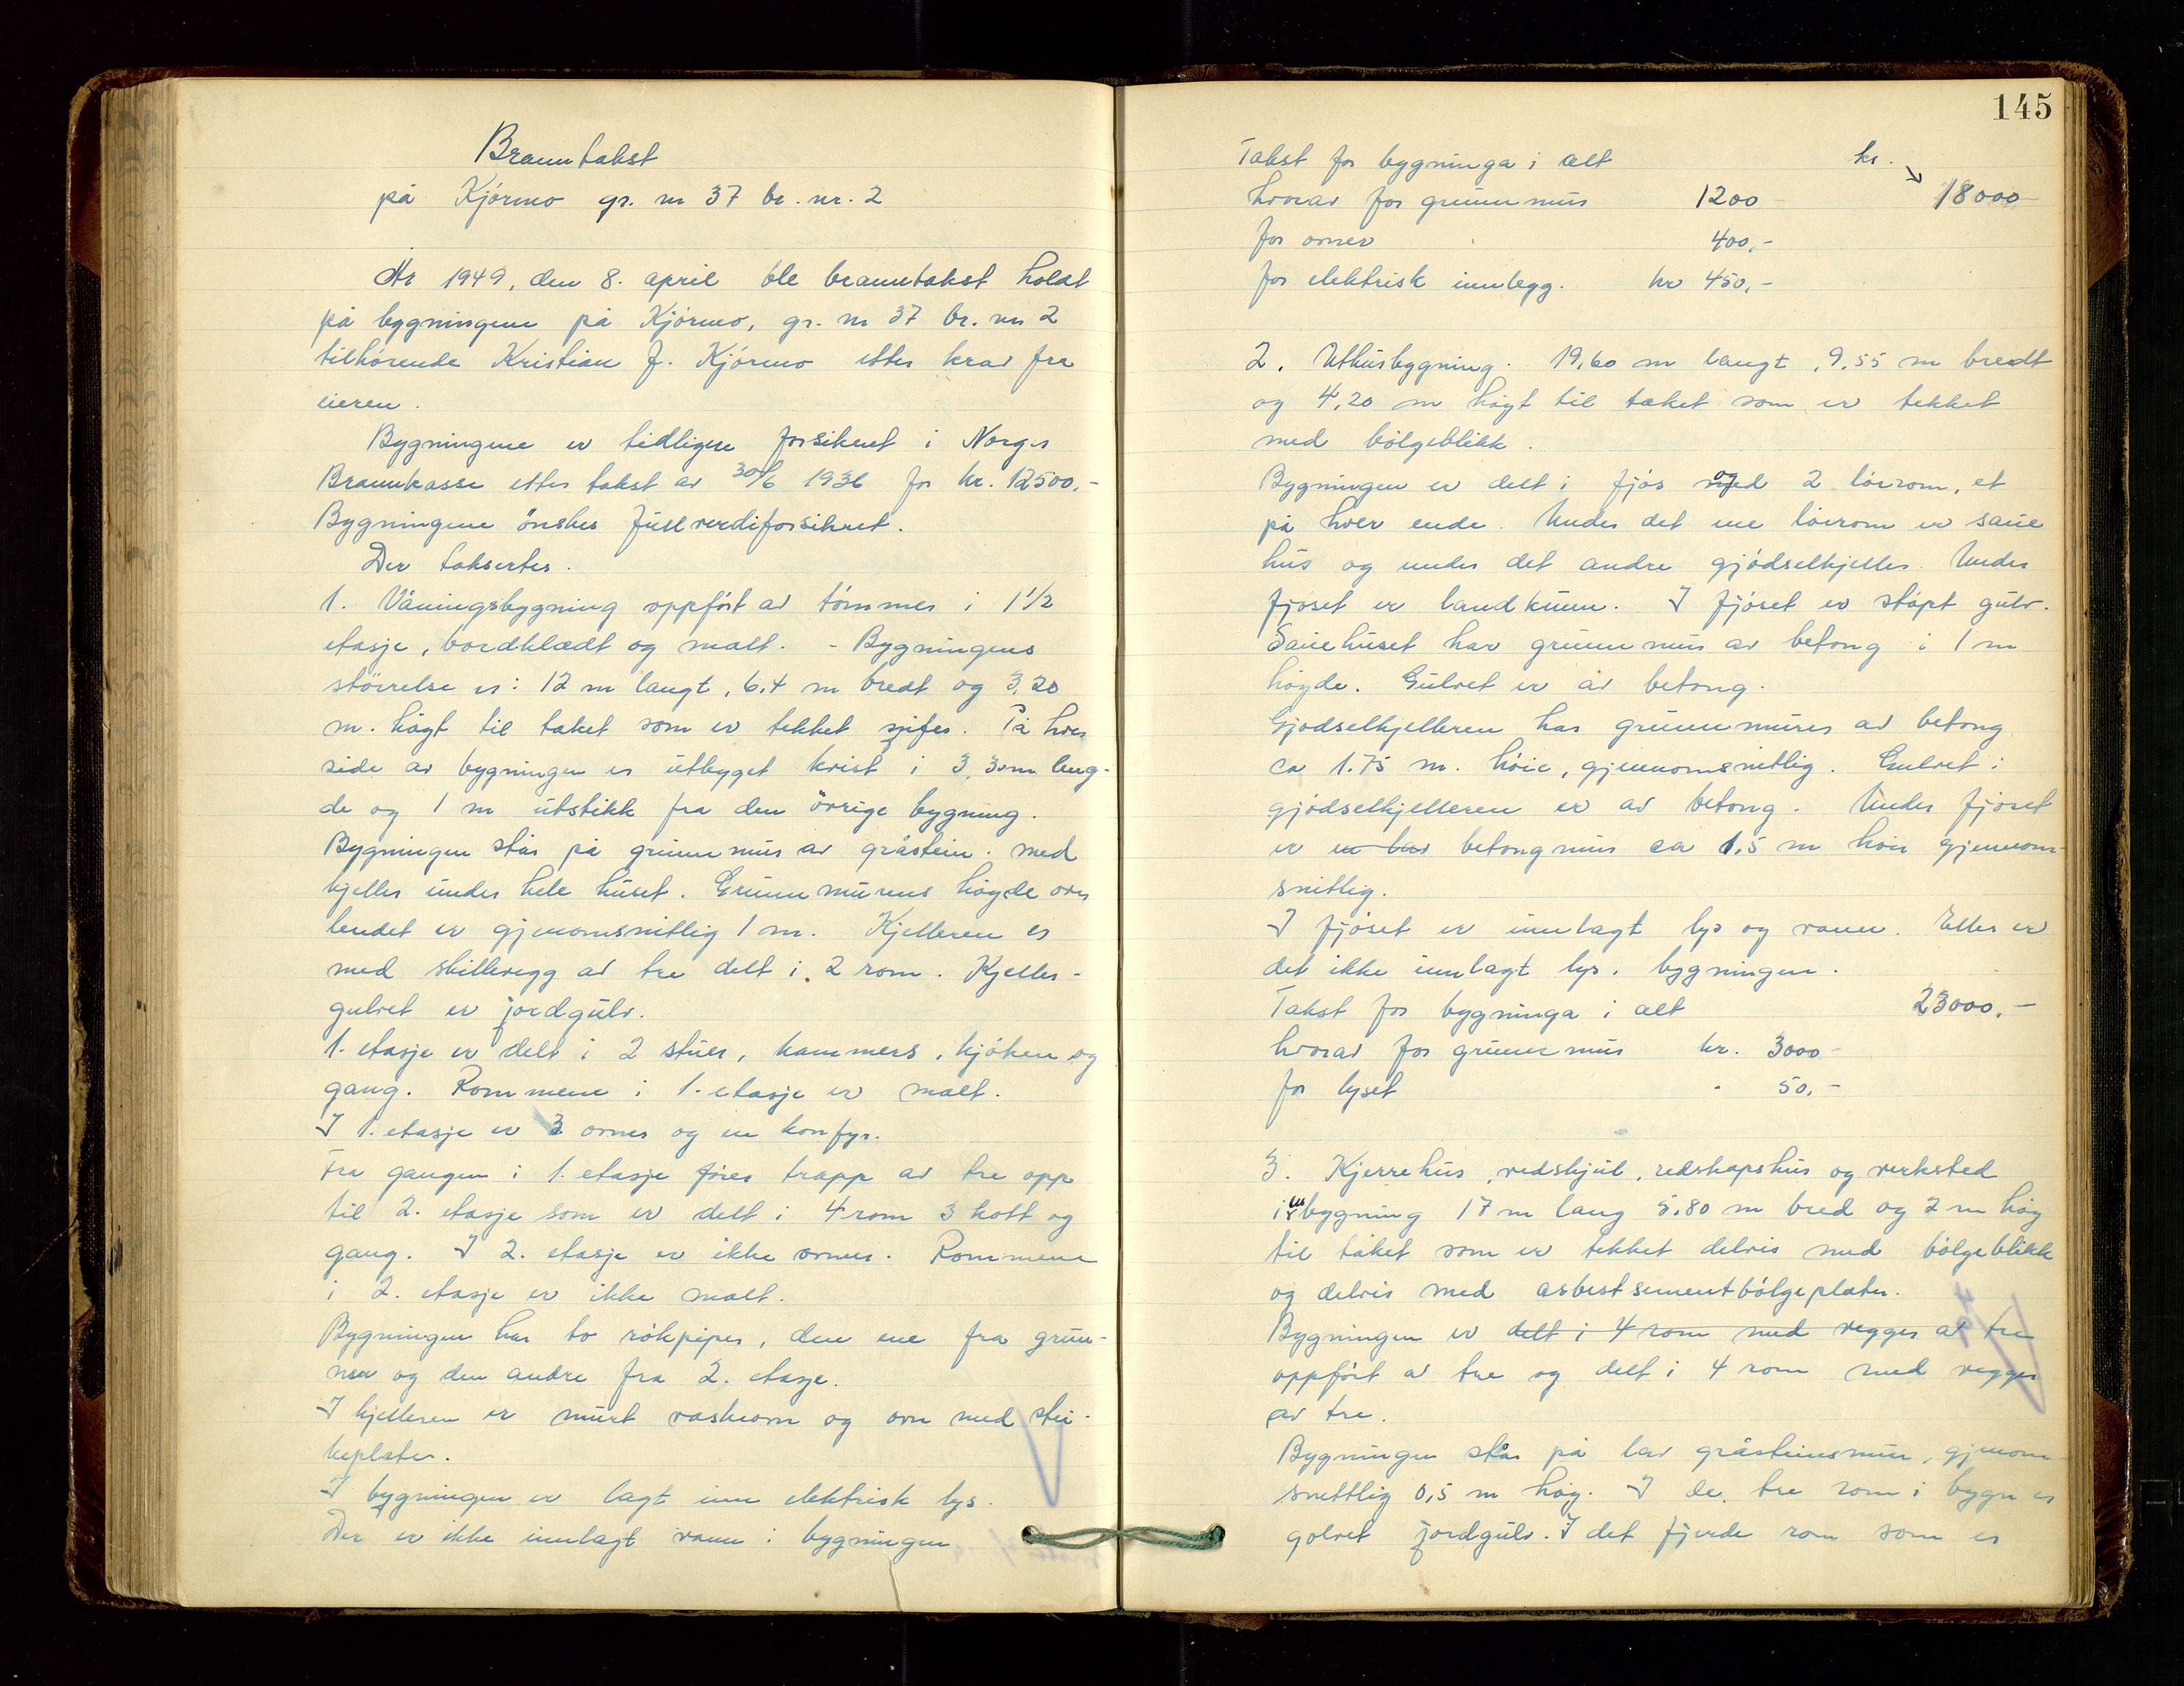 Branntakst
på Kjórmo gr. nr 37 br. nr. 2
År 1949, den 8. april ble branntakst holdt
på bygningene på Kjórmo, gr. nr 37 br. nr 2
tilhórende Kristian J. Kjórmo etter krav fra
eieren.
Bygningene er tidligere forsikret i Norges
Brannkasse etter takst av 30/6 1936 for kr. 12500,-
Bygningene ónskes fullverdiforsikret.
Der taksertes.
1. Våningsbygning oppfórt av tómmer i 1 1/2
etasje, bordklædt og malt. - Bygningens
stórrelse er: 12 m langt, 6,4 m bredt og 3,20
m. hógt til taket som er tekket På hver
side av bygningen er utbygget kvist i 3,30 m leng-
de og 1 m utstikk fra den óvrige bygning.
Bygningen står på grunnmur av gråstein. med
kjeller under hele huset. Grunnmurens hógde over
lendet er gjenomsnitlig 1 m. Kjelleren er
med skillevegg av tre delt i 2 rom. Kjeller-
gulvet er jordgulv.
1. etasje er delt i 2 stuer, kammers, kjóken og
gang. Rommene i 1. etasje er malt.
I 1. etasje er 3 ovner og en komfyr.
Fra gangen i 1. etasje fóres trapp av tre opp
til 2. etasje som er delt i 4 rom 3 kott og
gang. I 2. etasje er ikke ovner. Rommene
i 2. etasje er ikke malt.
Bygningen har to rókpiper, den ene fra grun-
nen og den andre fra 2. etasje.
I kjelleren er murt vaskeovn og ovn med stei-
keplater.
I bygningen er lagt inn elektrisk lys.
Der er ikke innlagt vann i bygningen
145
Takst for bygninga i alt kr.
hvorav for grunnmur 1200 - 18000-
for ovner 400,-
for elektrisk innlegg. kr 450,-
2. Uthusbygning. 19,60 m langt, 9,55 m bredt
og 4,20 m hógt til taket som er tekket
med bólgeblikk.
Bygningen er delt i fjós og 2 lóerom, et
på hver ende. Under det ene lóerom er saue
hus og under det andre gjódselkjeller. Under
fjóset er landkum. I fjóset er stópt gulv.
Sauehuset har grunnmur av betong i 1 m
hógde. Gulvet er av betong.
Gjódselkjelleren har grunnmurer av betong
ca 1.75 m. hóie, gjennomsnitlig. Gulvet i
gjódselkjelleren er av betong. Under fjóset
er en betongmur ca 1,5 m hói gjennom-
snitlig.
I fjóset er innlagt lys og vann. Ellers er
det ikke innlagt lys i bygningen.
Takst for bygninga i alt 23000,-
hvorav for grunnmur kr. 3000-
for lyset " 50,-
3. Kjerrehus, vedskjul, redskapshus og verksted
i en bygning 17 m lang 5,80 m bred og 2 m hóg
til taket som er tekket delvis med bólgeblikk
og delvis med asbestsementbólgeplater.
Bygningen er delt i 4 rom med vegger av tre
oppfórt av tre og delt i 4 rom med vegger
av tre.
Bygningen står på lav gråsteinsmur, gjenom-
snittlig 0,5 m hóg. I de tre rom i bygn er
golvet jordgulv. I det fjerde rom som er